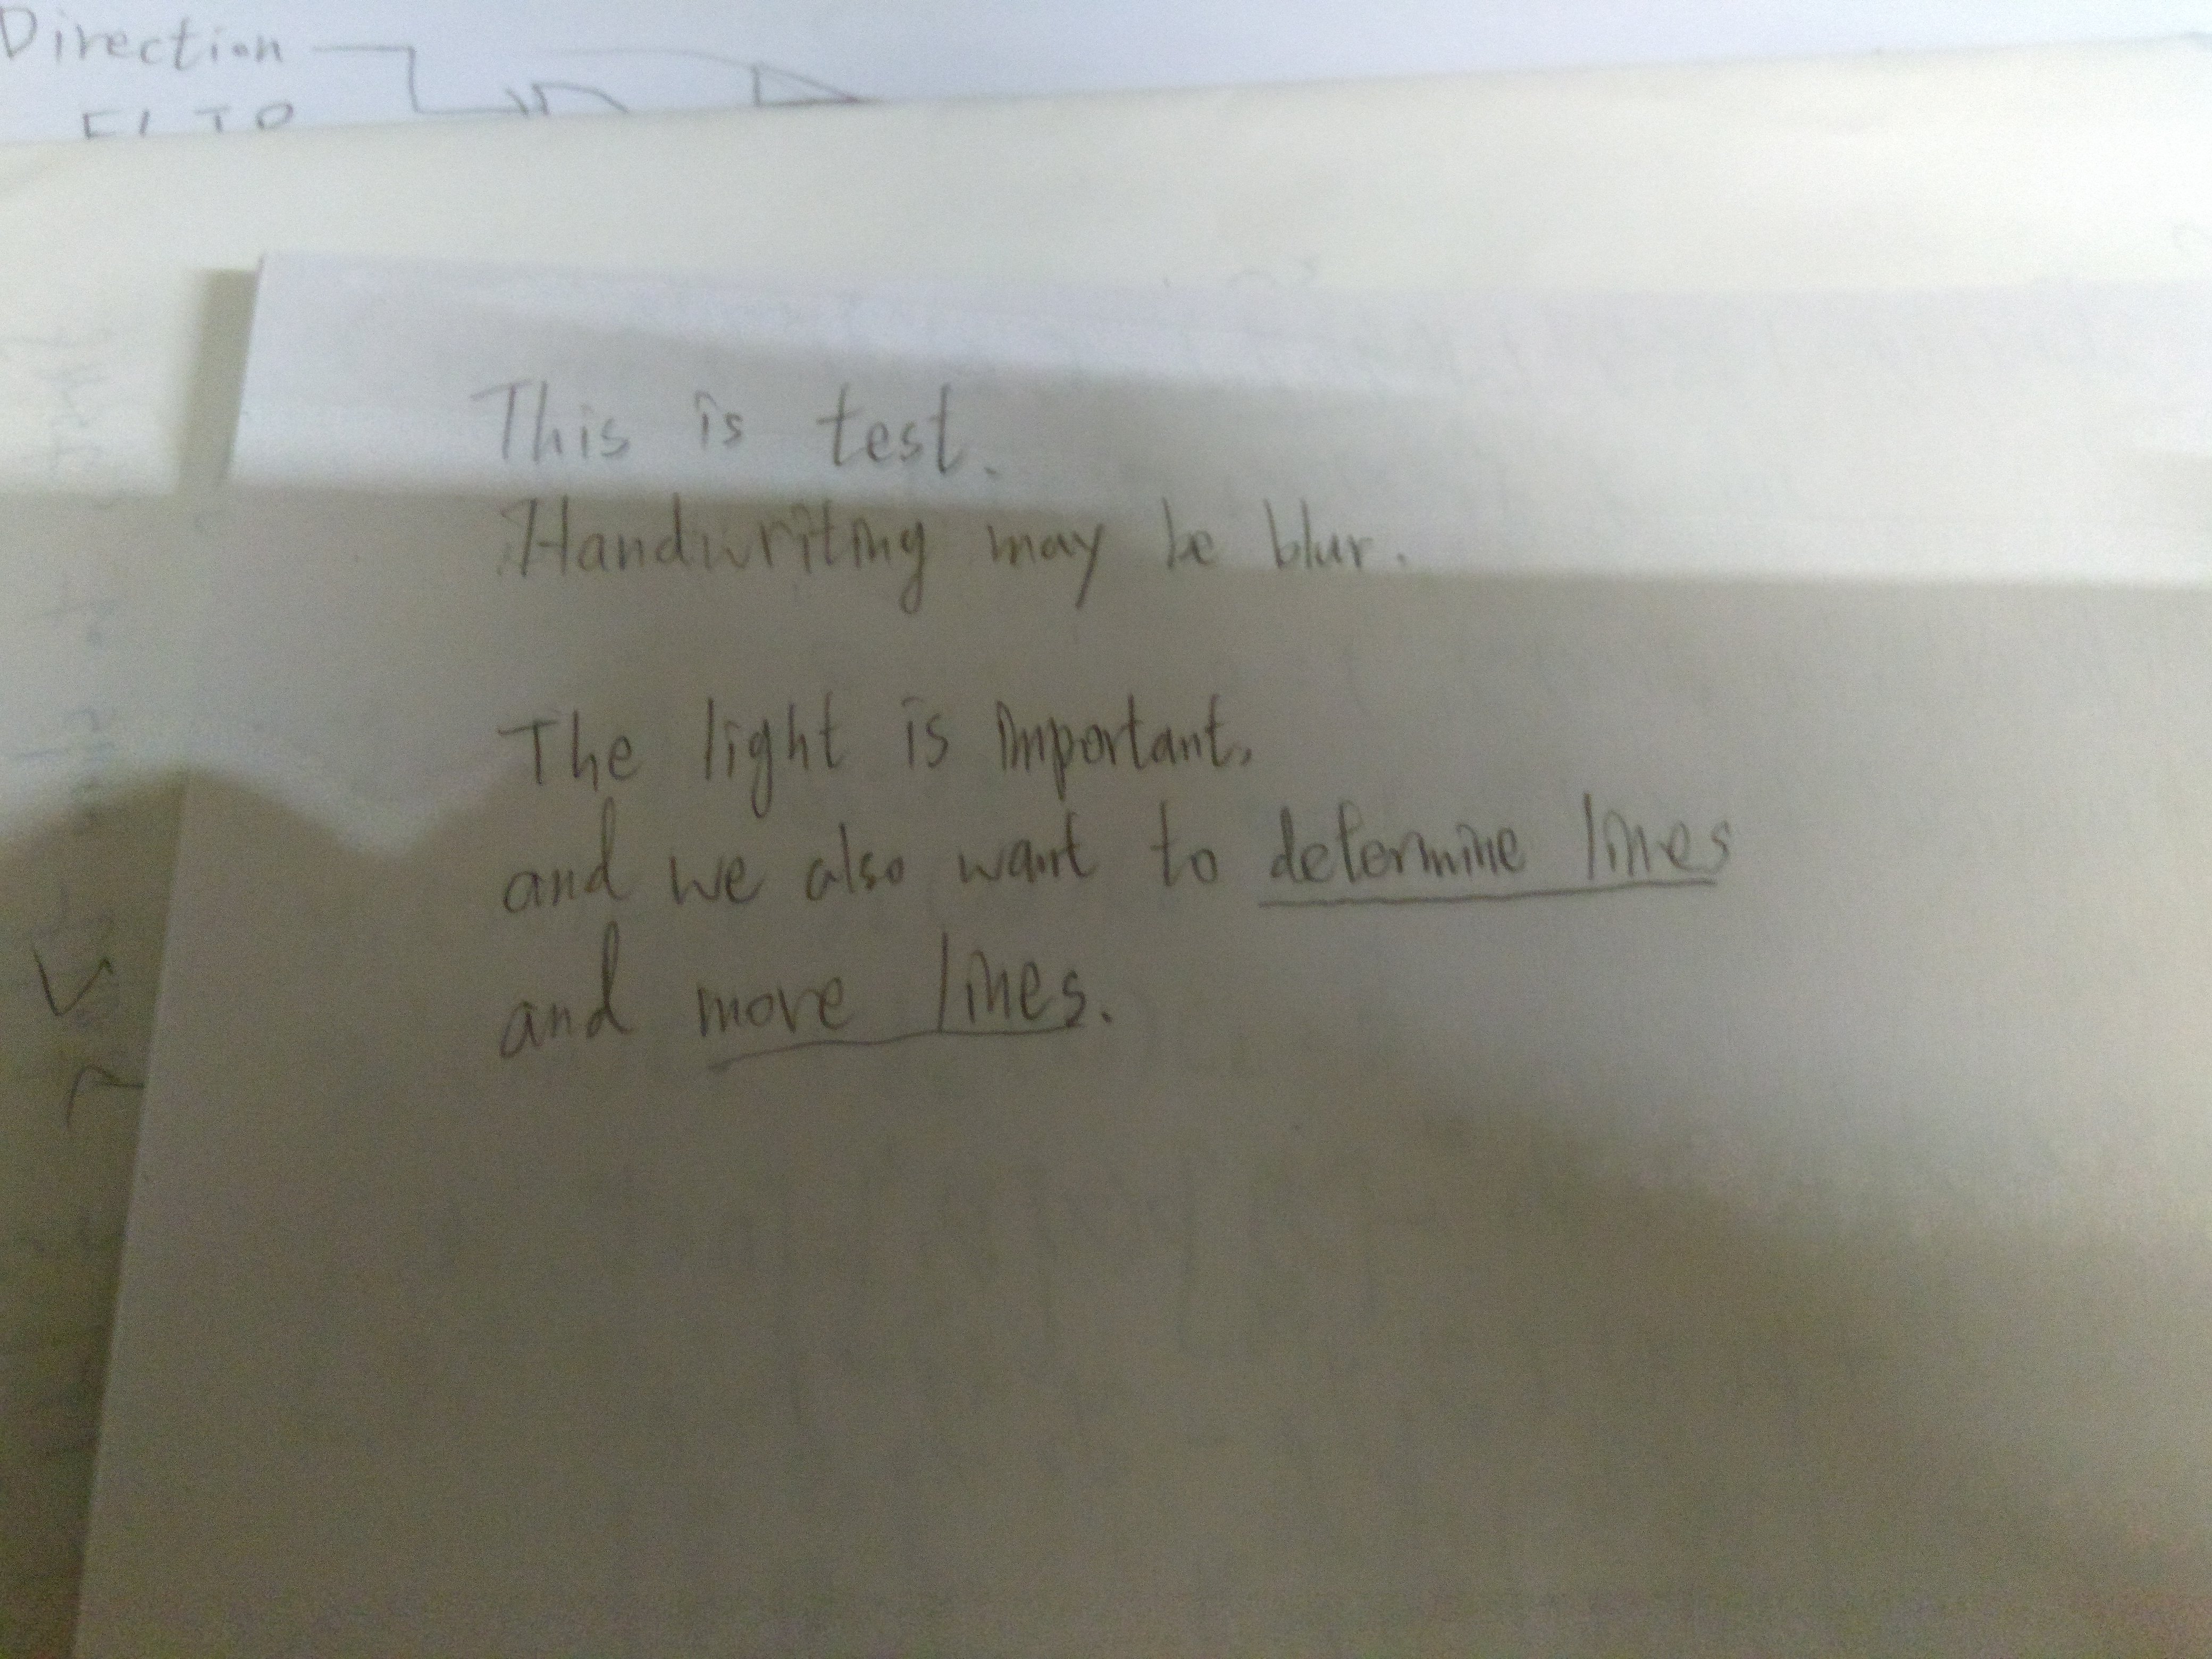 Direction
This is test.
Handwriting may be blur.
The light is important,
and we also want to determine lines
and more lines.